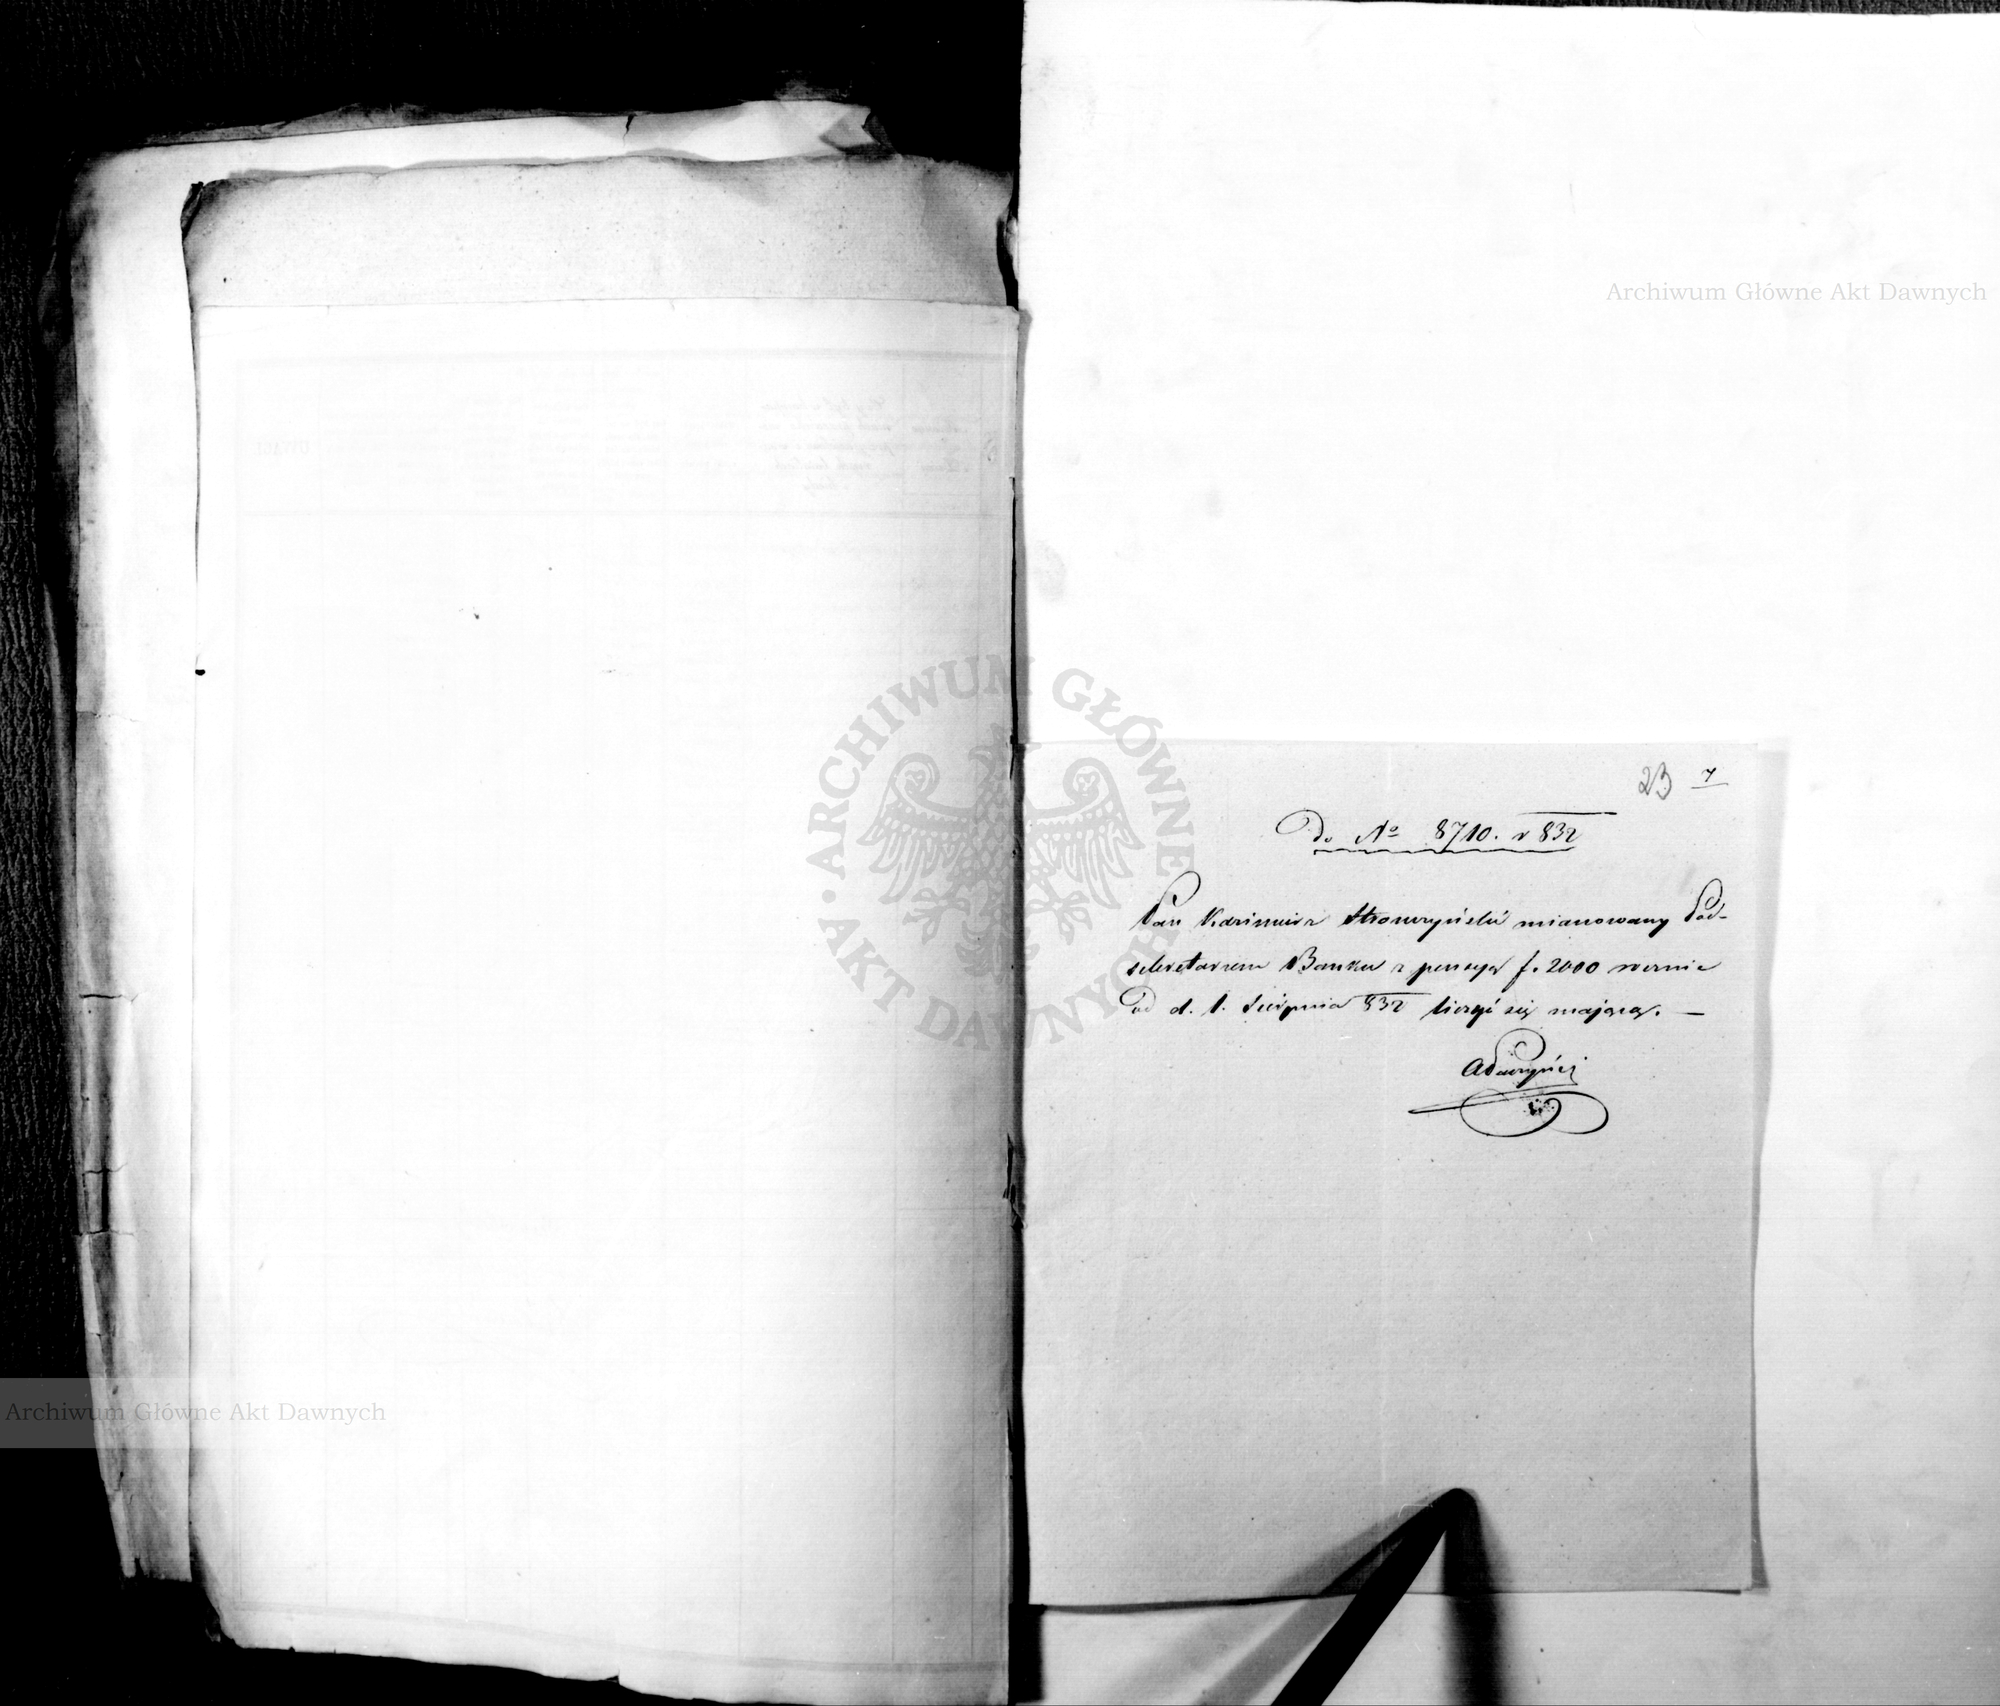 Archiwum Główne Akt Dawnych
ARCHIWUM GŁÓWNE AKT DAWNYCH
23 7
Do No 8710. r 832
Pan Kazimierz Stronczyński mianowany Pod-
sekretarzem Banku z pensyą f. 2000 rocznie
Od d. 1. Sierpnia 832 liczyć się mającą. —
Archiwum Główne Akt Dawnych